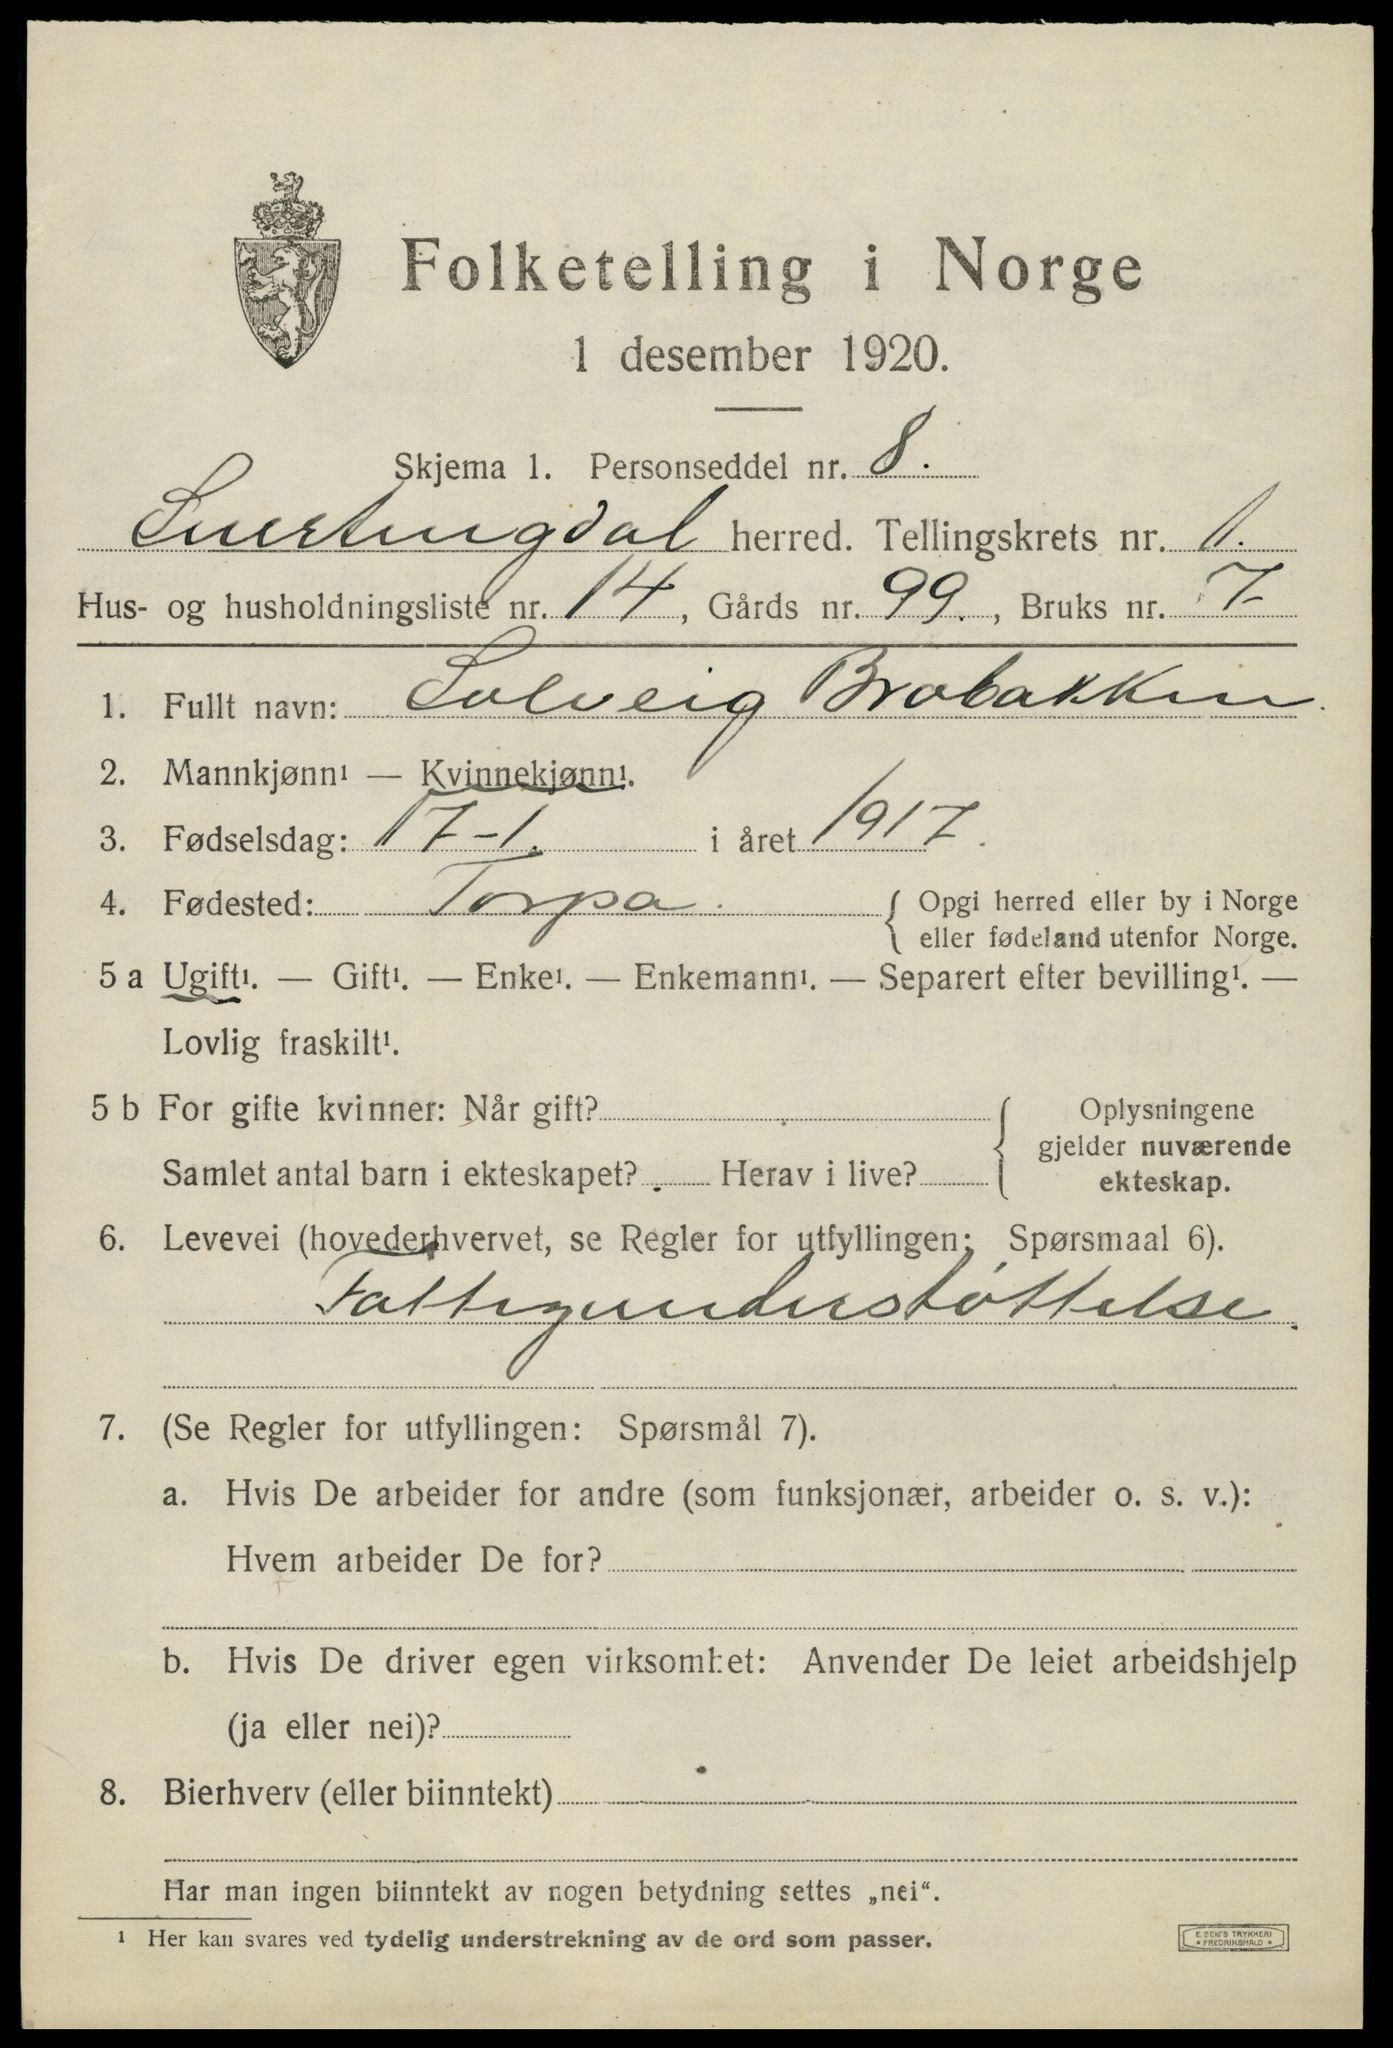 Folketelling i Norge
1 desember 1920.
Skjema 1. Personseddel nr. 8.
Snertingdal herred. Tellingskrets nr. 1.
Hus- og husholdningsliste nr. 14, Gårds nr. 99., Bruks nr. 7
1. Fullt navn: Solveig Brobakken.
2. Mannkjønn¹ — Kvinnekjønn¹.
3. Fødselsdag: 17-1. i året 1917.
4. Fødested: Torpa. { Opgi herred eller by i Norge
eller fødeland utenfor Norge.
5 a Ugift¹. — Gift¹. — Enke¹. — Enkemann¹. — Separert efter bevilling¹. —
Lovlig fraskilt¹.
5 b For gifte kvinner: Når gift? { Oplysningene
gjelder nuværende
Samlet antal barn i ekteskapet? Herav i live? ekteskap.
6. Levevei (hovederhvervet, se Regler for utfyllingen; Spørsmaal 6).
Fattigunderstøttelse.
7. (Se Regler for utfyllingen: Spørsmål 7).
a. Hvis De arbeider for andre (som funksjonær, arbeider o. s. v.):
Hvem arbeider De for?
b. Hvis De driver egen virksomhet: Anvender De leiet arbeidshjelp
(ja eller nei)?
8. Bierhverv (eller biinntekt)
Har man ingen biinntekt av nogen betydning settes „nei“.
¹ Her kan svares ved tydelig understrekning av de ord som passer.
E. SEM'S TRYKKERI
* FREDRIKSHALD *